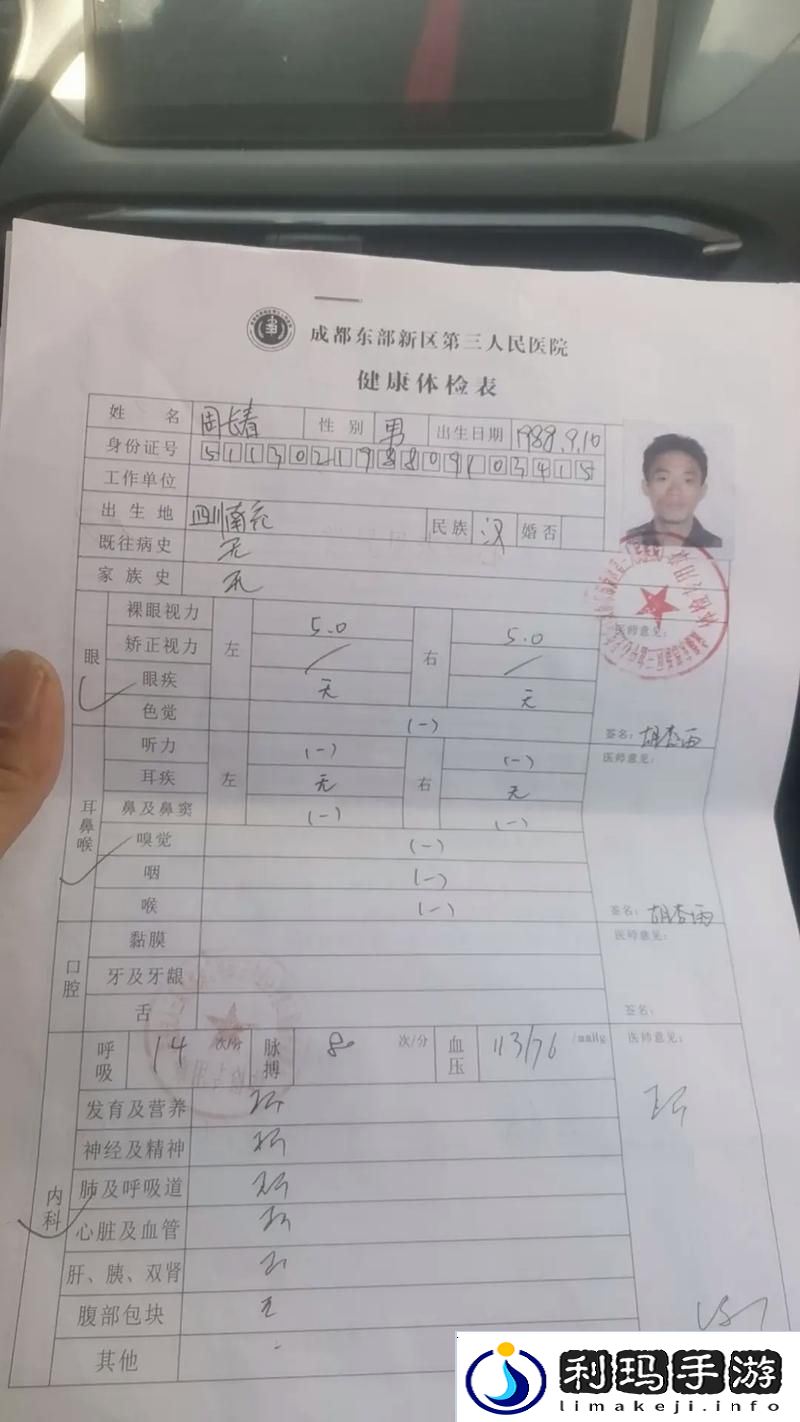 成都东部新区第三人民医院
健康体检表
姓名 周长春 性别 男 出生日期 1988.9.10
身份证号 511302198809103415
工作单位
出生地 四川南充 民族 汉 婚否
既往病史 无
家族史 无
眼
裸眼视力 左 5.0 右 5.0
矫正视力 / /
眼疾 无 无
色觉 (-)
医师意见:
签名: 胡杏雨
耳鼻喉
听力 左 (-) 右 (-)
耳疾 无 无
鼻及鼻窦 (-) (-)
嗅觉 (-)
咽 (-)
喉 (-)
医师意见:
签名: 胡杏雨
口腔
黏膜
牙及牙龈
舌
医师意见:
签名:
内科
呼吸 14 次/分 脉搏 次/分 血压 113/76 /mmHg
医师意见:
发育及营养
神经及精神
肺及呼吸道
心脏及血管
肝、胰、双肾
腹部包块 无
其他 -
利玛手游
limakeji.info